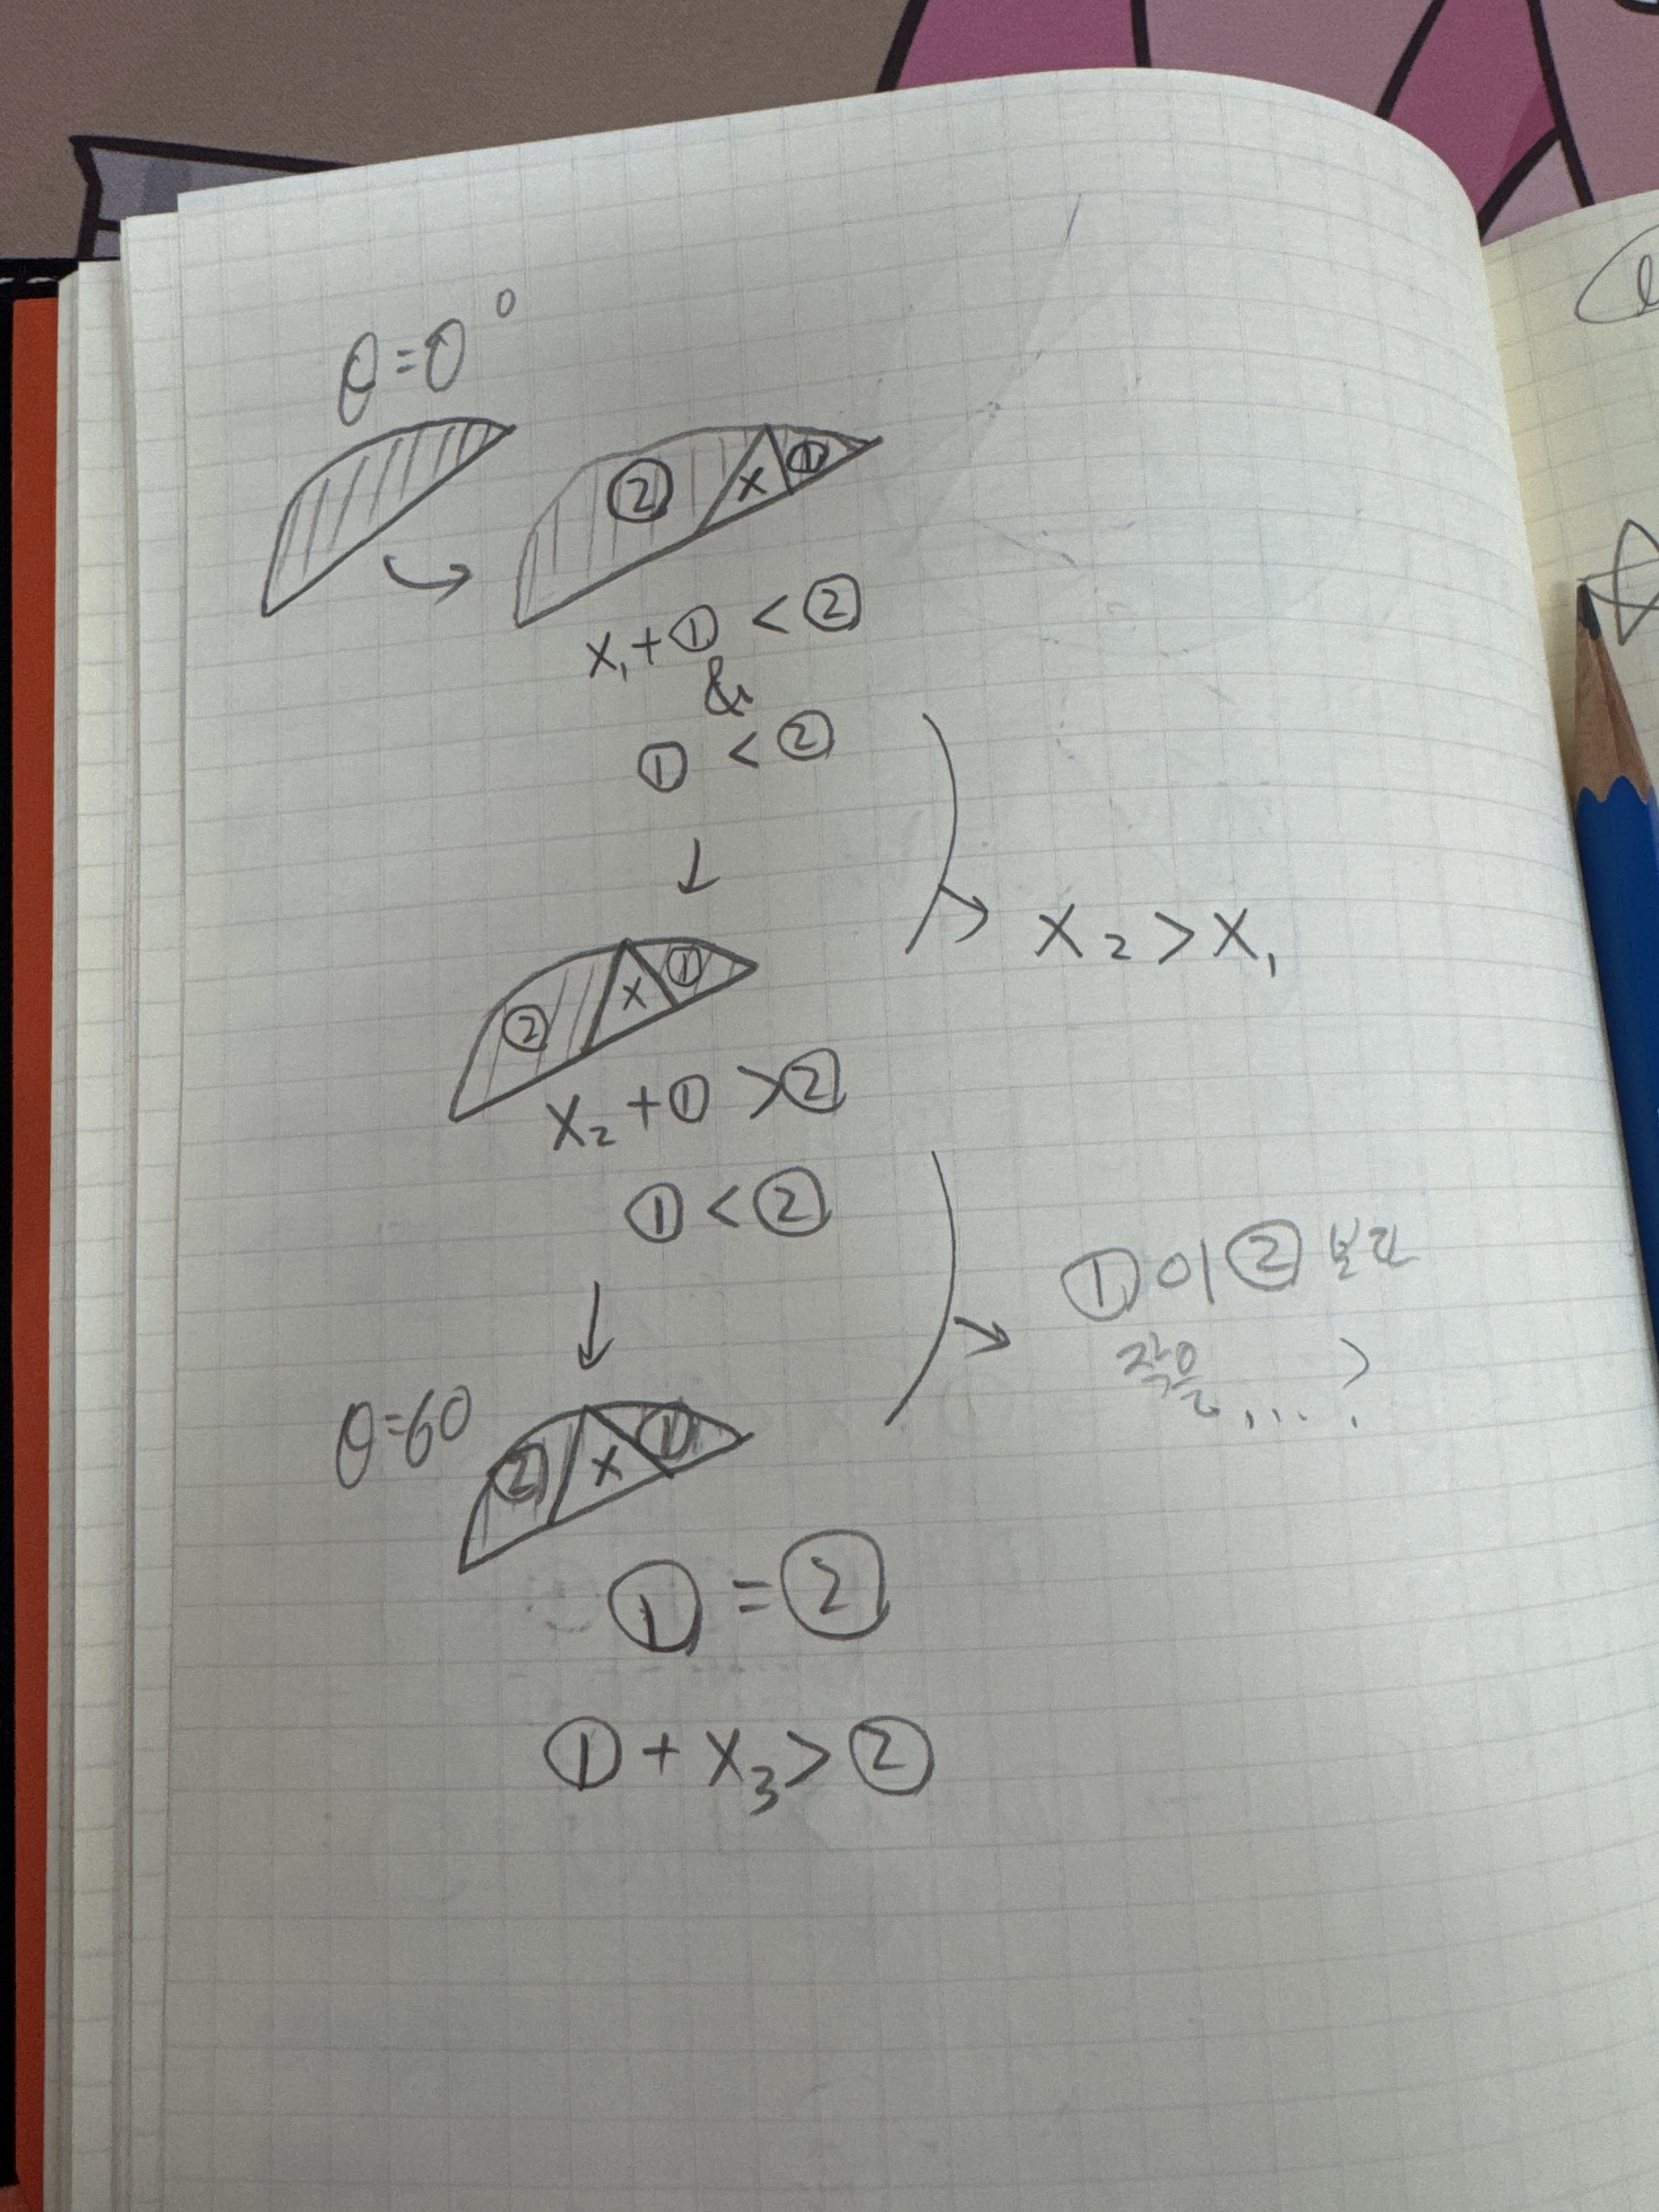 θ=0°
② x ①
x₁+① < ②
&
① < ②
↓
x₂ > x₁
② x ①
x₂ +① >②
① < ②
↓
①이 ② 보다
작음....?
θ=60
② x ①
① = ②
① + x₃ > ②